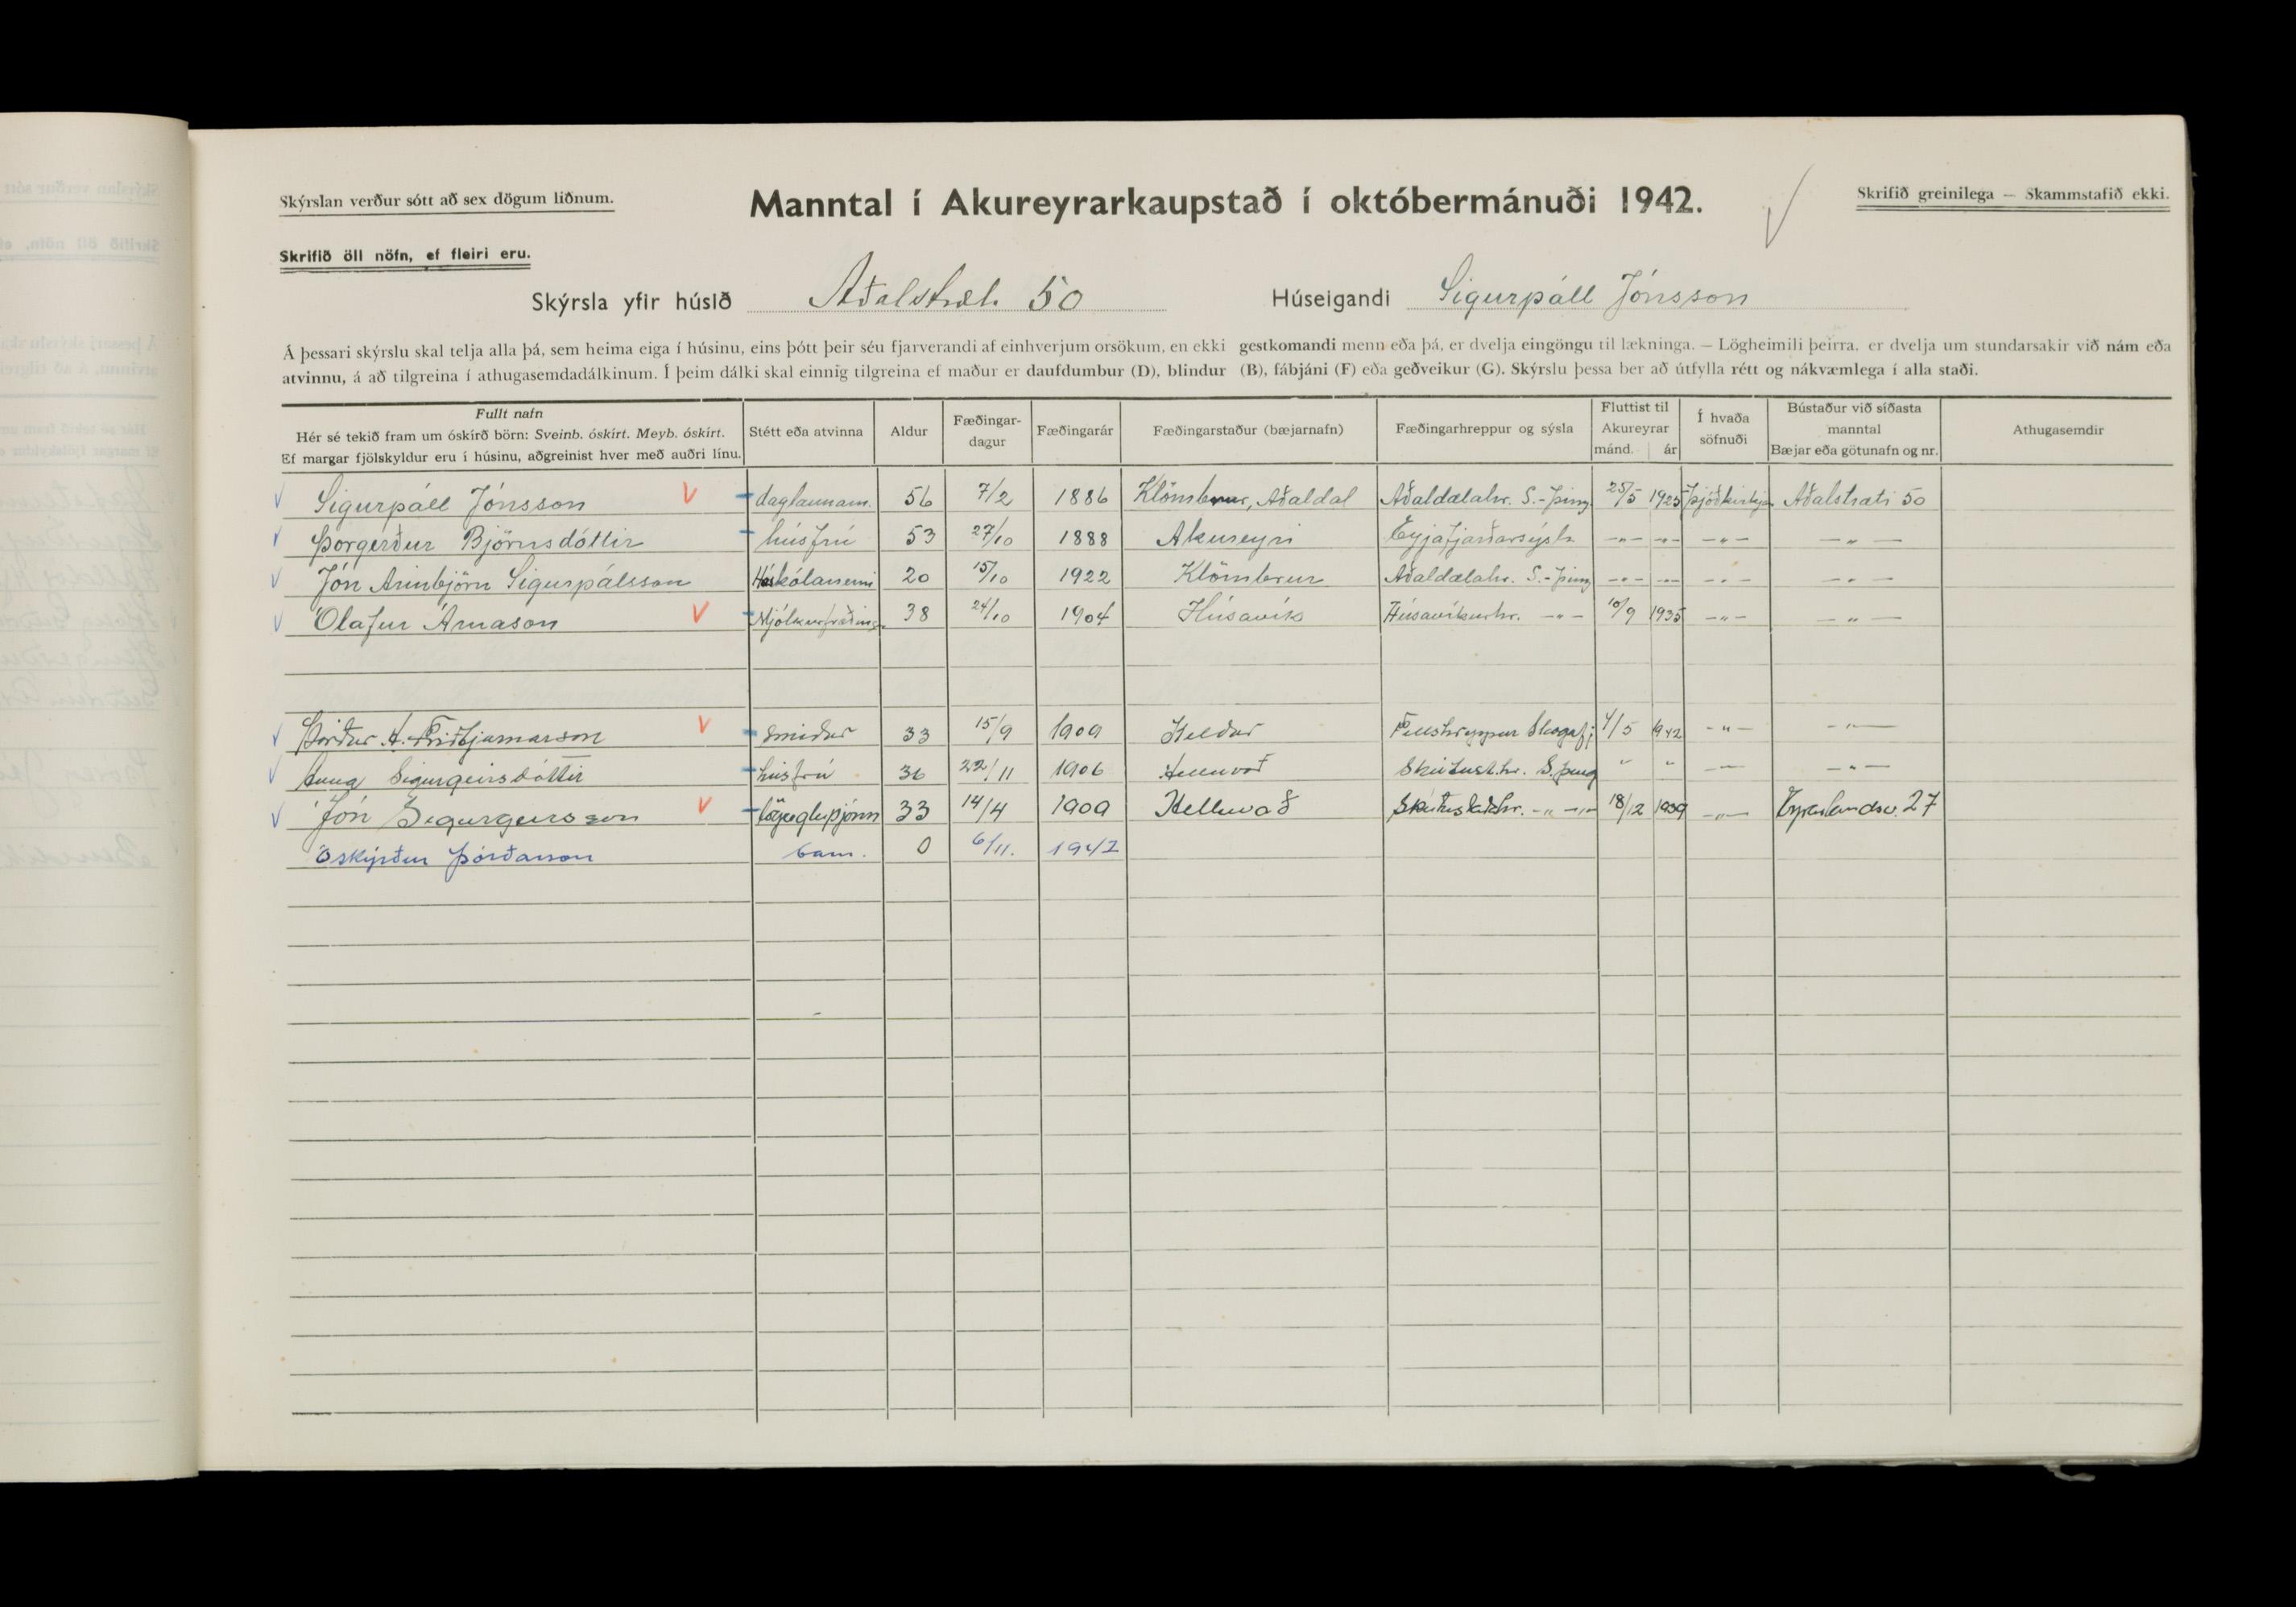 Skýrslan verður sótt að sex dögum liðnum.
Manntal í Akureyrarkaupstað í októbermánuði 1942.
Skrifið greinilega — Skammstafið ekki.
Skrifið öll nöfn, ef fleiri eru.
Skýrsla yfir húsið Aðalstræti 50 Húseigandi Sigurpáll Jónsson
Á þessari skýrslu skal telja alla þá, sem heima eiga í húsinu, eins þótt þeir séu fjarverandi af einhverjum orsökum, en ekki gestkomandi menn eða þá, er dvelja eingöngu til lækninga. — Lögheimili þeirra, er dvelja um stundarsakir við nám eða
atvinnu, á að tilgreina í athugasemdadálkinum. Í þeim dálki skal einnig tilgreina ef maður er daufdumbur (D), blindur (B), fábjáni (F) eða geðveikur (G). Skýrslu þessa ber að útfylla rétt og nákvæmlega í alla staði.
Fullt nafn
Hér sé tekið fram um óskírð börn: Sveinb. óskírt. Meyb. óskírt.
Ef margar fjölskyldur eru í húsinu, aðgreinist hver með auðri línu.
Stétt eða atvinna
Aldur
Fæðingar-
dagur
Fæðingarár
Fæðingarstaður (bæjarnafn)
Fæðingarhreppur og sýsla
Fluttist til
Akureyrar
mánd. ár
Í hvaða
söfnuði
Bústaður við síðasta
manntal
Bæjar eða götunafn og nr.
Athugasemdir
Sigurpáll Jónsson daglaunam. 56 7/2 1886 Klömbrur, Aðaldal Aðaldælahr. S.-Þing. 25/5 1925 Þjóðkirkju Aðalstræti 50
Þorgerður Björnsdóttir húsfrú 53 27/10 1888 Akureyri Eyjafjarðarsýslu —"— —"— —"— —"—
Jón Arinbjörn Sigurpálsson Háskólanemi 20 15/10 1922 Klömbrur Aðaldælahr. S.-Þing —"— —"— —"— —"—
Ólafur Árnason Mjólkurfræðing. 38 24/10 1904 Húsavík Húsavíkurhr. —"— 10/9 1935 —"— —"—
Þórður A. Friðbjarnarson smiður 33 15/9 1909 Fellshreppur Skagafj: 4/5 1942 —"— —"—
Anna Sigurgeirsdóttir húsfrú 36 22/11 1906 Helluvað Skútust.hr. S.Þing " " —"— —"—
Jón Sigurgeirsson lögregluþjónn 33 14/4 1909 Helluvað Skútustaðahr. —"— —"— 18/12 1939 —"— Eyrarlandsv. 27
Óskýrður Þórðarson barn. 0 6/11. 1942